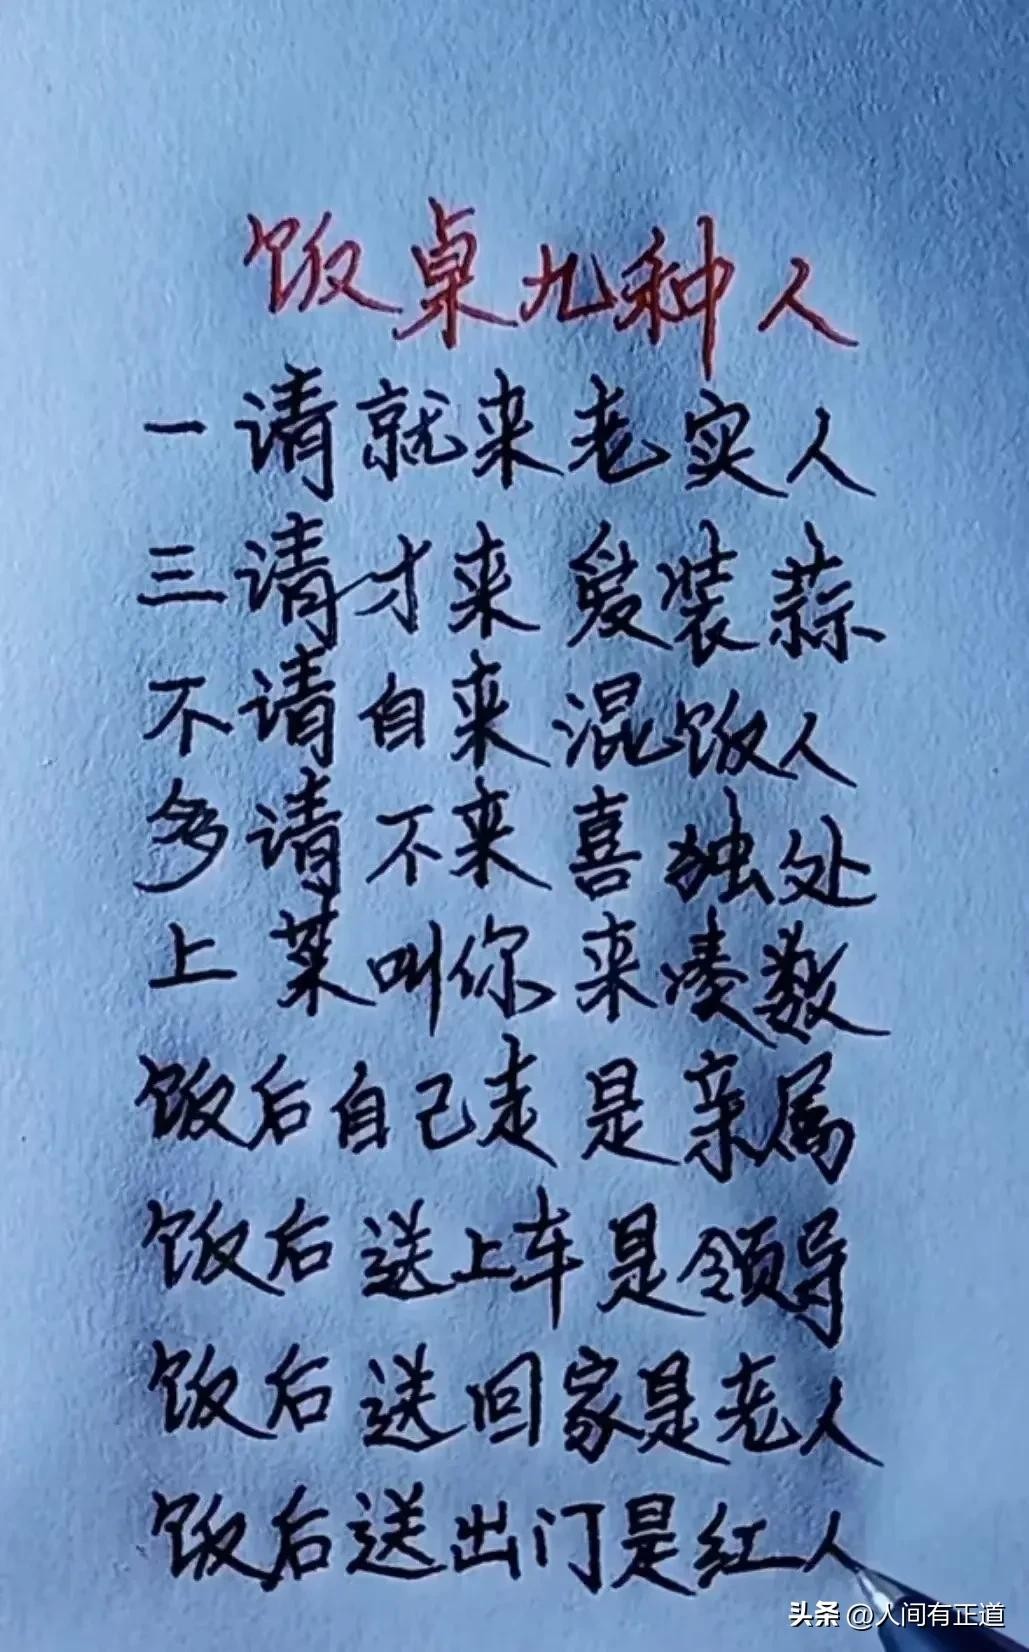 饭桌九种人
一请就来老实人
三请才来爱装蒜
不请自来混饭人
多请不来喜独处
上菜叫你来凑数
饭后自己走是亲属
饭后送上车是领导
饭后送回家是老人
饭后送出门是红人
头条 @人间有正道